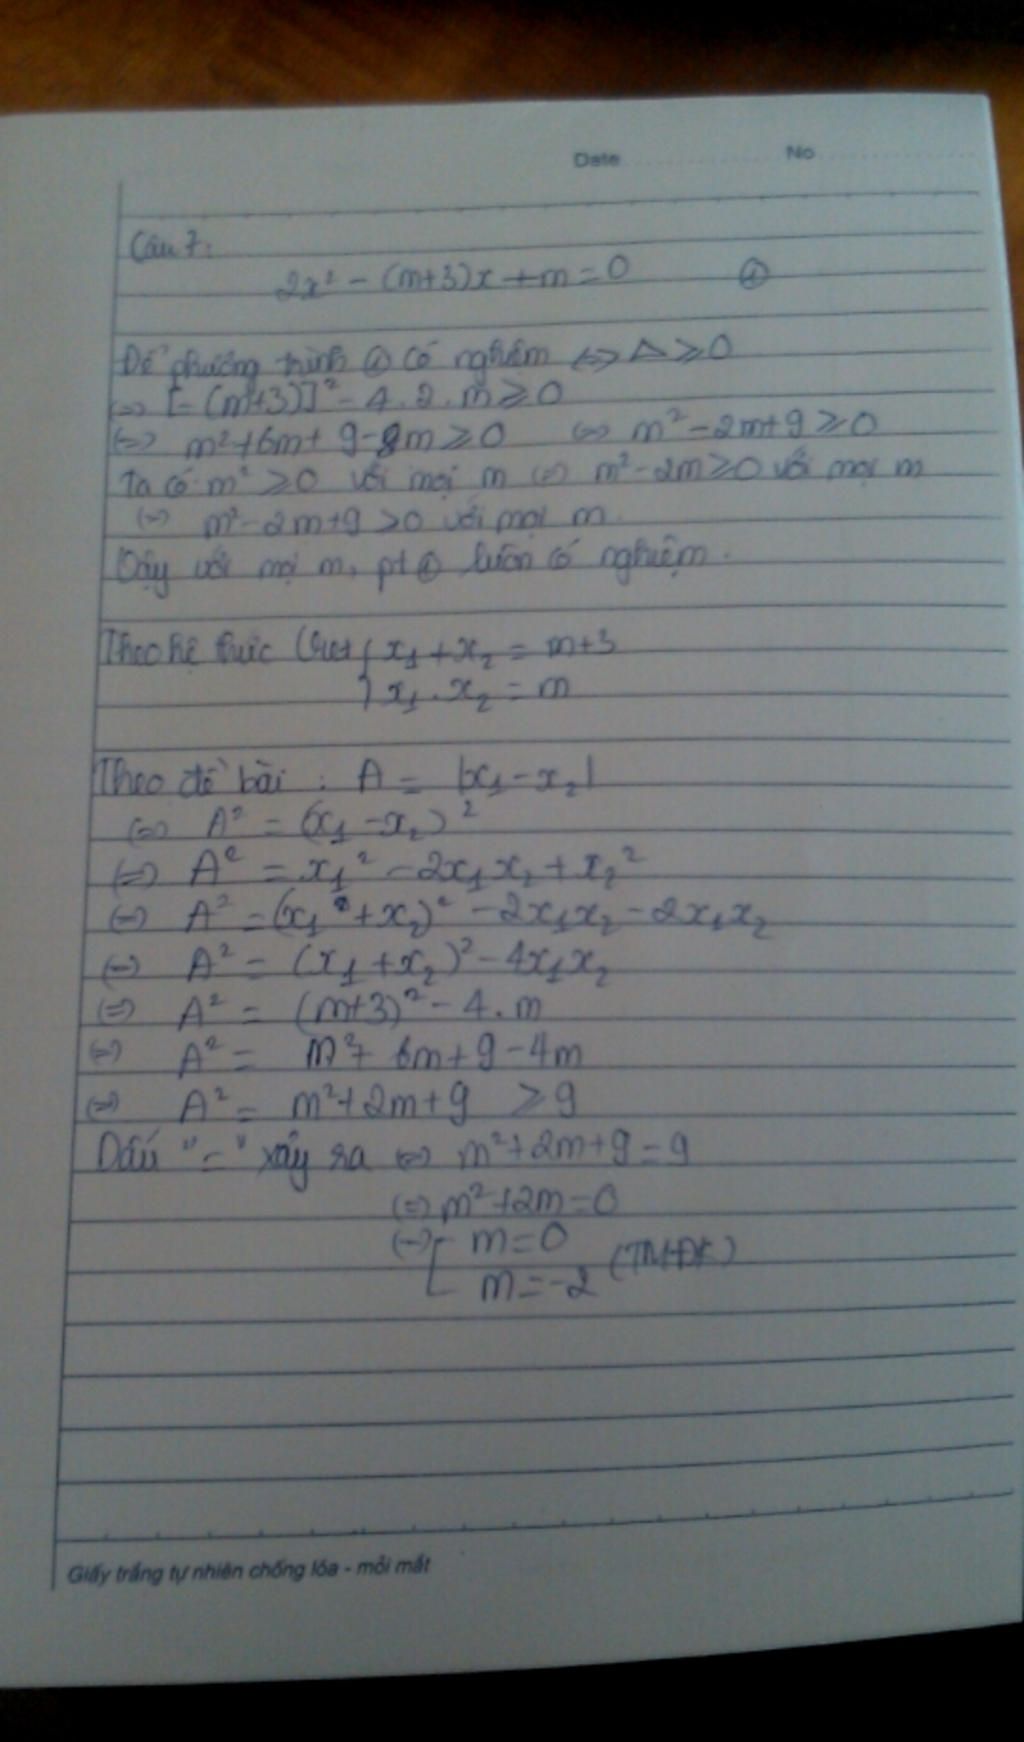 Date No
Câu 7:
2x² - (m+3)x + m = 0 ①
Để phương trình ① có nghiệm ⇔ Δ ≥ 0
⇔ [-(m+3)]² - 4.2.m ≥ 0
⇔ m² + 6m + 9 - 8m ≥ 0 ⇔ m² - 2m + 9 ≥ 0
Ta có m² ≥ 0 với mọi m ⇔ m² - 2m ≥ 0 với mọi m
⇔ m² - 2m + 9 > 0 với mọi m.
Vậy với mọi m, pt ① luôn có nghiệm.
Theo hệ thức Viet { x₁ + x₂ = m+3
x₁ . x₂ = m
Theo đề bài : A = |x₁ - x₂|
⇔ A² = (x₁ - x₂)²
⇔ A² = x₁² - 2x₁x₂ + x₂²
⇔ A² = (x₁ + x₂)² - 2x₁x₂ - 2x₁x₂
⇔ A² = (x₁ + x₂)² - 4x₁x₂
⇔ A² = (m+3)² - 4.m
⇔ A² = m² + 6m + 9 - 4m
⇔ A² = m² + 2m + 9 ≥ 9
Dấu "=" xảy ra ⇔ m² + 2m + 9 = 9
⇔ m² + 2m = 0
⇔ [ m = 0
m = -2 (TMĐK)
Giấy trắng tự nhiên chống lóa - mỏi mắt